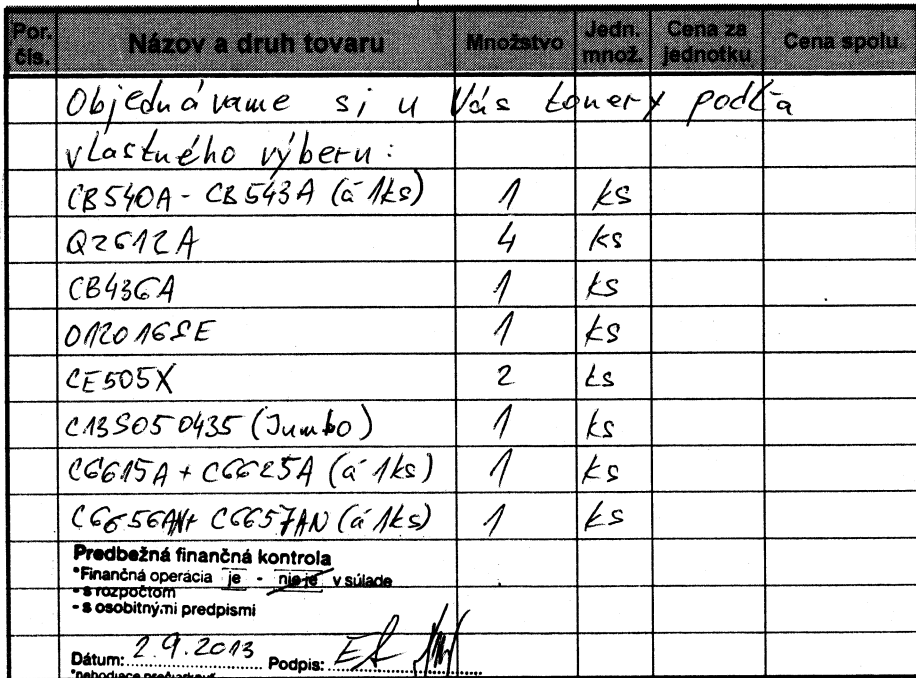 Por. čís. Názov a druh tovaru Množstvo Jedn. množ. Cena za jednotku Cena spolu
Objednávame si u Vás tonery podľa
vlastného výberu:
CB540A - CB543A (á 1ks) 1 ks
Q2612A 4 ks
CB436A 1 ks
012016SE 1 ks
CE505X 2 ks
C13S050435 (Jumbo) 1 ks
C6615A + C6625A (á 1ks) 1 ks
C6656AN+ C6657AN (á 1ks) 1 ks
Predbežná finančná kontrola
*Finančná operácia je - nie je v súlade
- s rozpočtom
- s osobitnými predpismi
Dátum: 2.9.2013 Podpis:
*nehodiace prečiarknuť